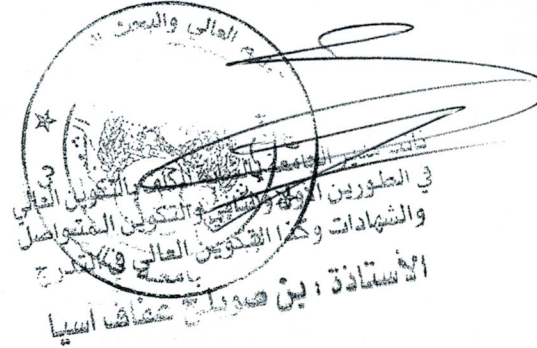 العالي والبحث
نائب مدير الجامعة المكلف بالتكوين العالي
في الطورين الأول والثاني والتكوين المتواصل
والشهادات وكذا التكوين العالي في التدرج
بالجامعة
الأستاذة : بن صويلح عفاف آسيا